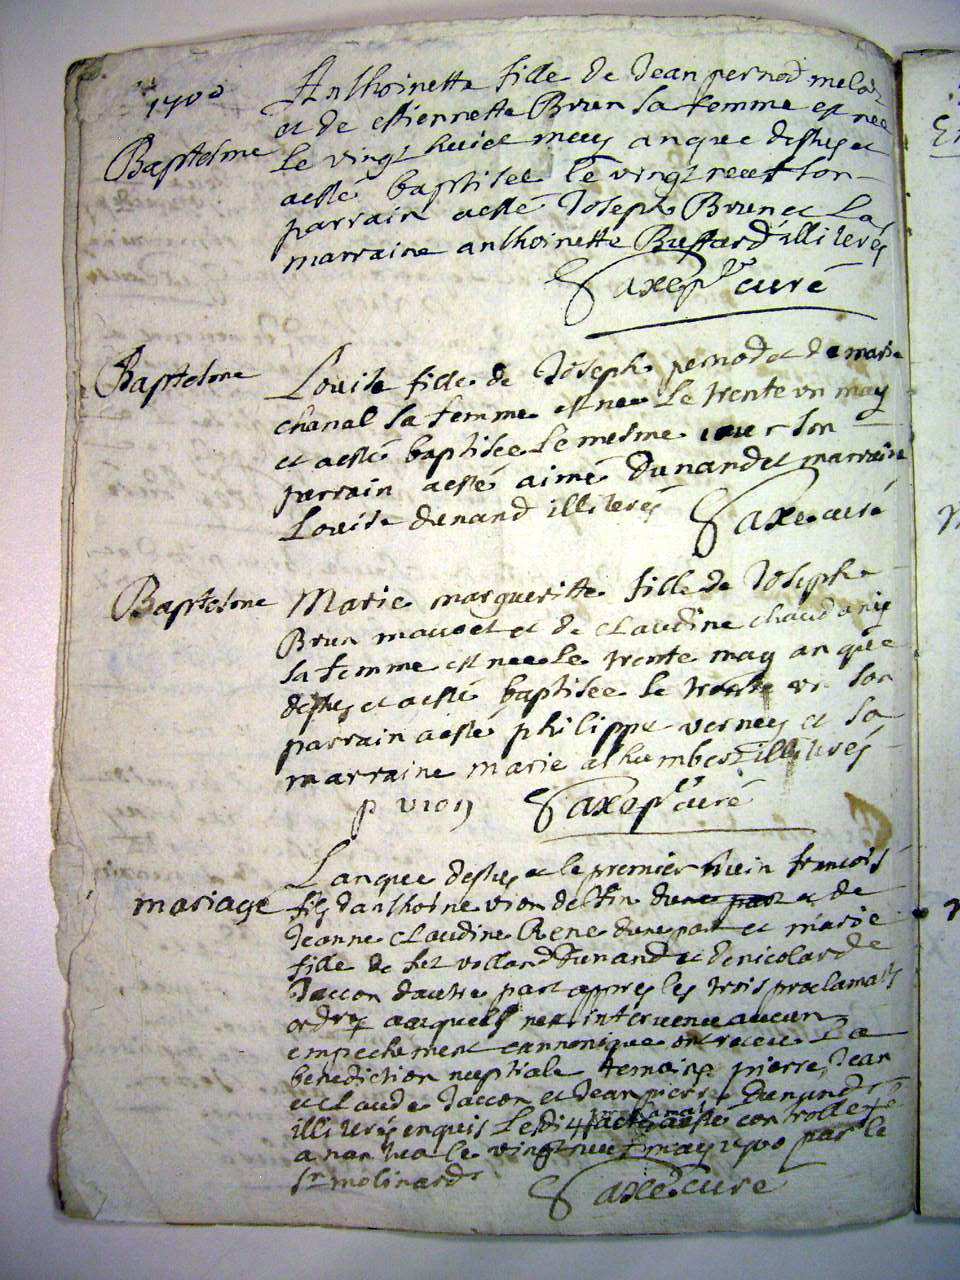 1700
Baptesme
Anthoinette fille de Jean pernod melo
et de estiennette Brun sa femme est nee
le vingt huict may anque desus et
aesté baptisee le vingt neuf son
parrain aesté Joseph Brun et La
marraine anthoinette Buffard illiterés
Saxe pr curé
Baptesme
Louise fille de Joseph pernod et de marie
chanal sa femme est nee Le trente un may
et aesté baptisee Le mesme iour son
parrain aesté aimé Dunand et marraine
Louise dunand illiterés
Saxe curé
Baptesme
Marie margueritte fille de Joseph
Brun mauvet et de claudine chaudany
sa femme est nee le trente may an que
desus et aesté baptisee le trente un son
parrain aesté philippe verney et sa
marraine marie alhumbert illiterés
p vion
Saxe pr curé
mariage
Lanque desus et le premier iuin francois
fils danthoine vion delfin dune part et de
Jeanne claudine Rene dune part et marie
fille de volland Dunand et de nicolarde
Jaccon dautre part appres les trois proclamaons
ordres auxquelles nest intervenu aucun
empechement cannonique ont receu La
benediction nuptiale temoins pierre, Jean
et claude Jaccon et Jean pierre Dunand
illiterés enquis Ledit acte aesté controllé
a nantua le vingt neuf may 1700 par le
Sr molinard
Saxe curé